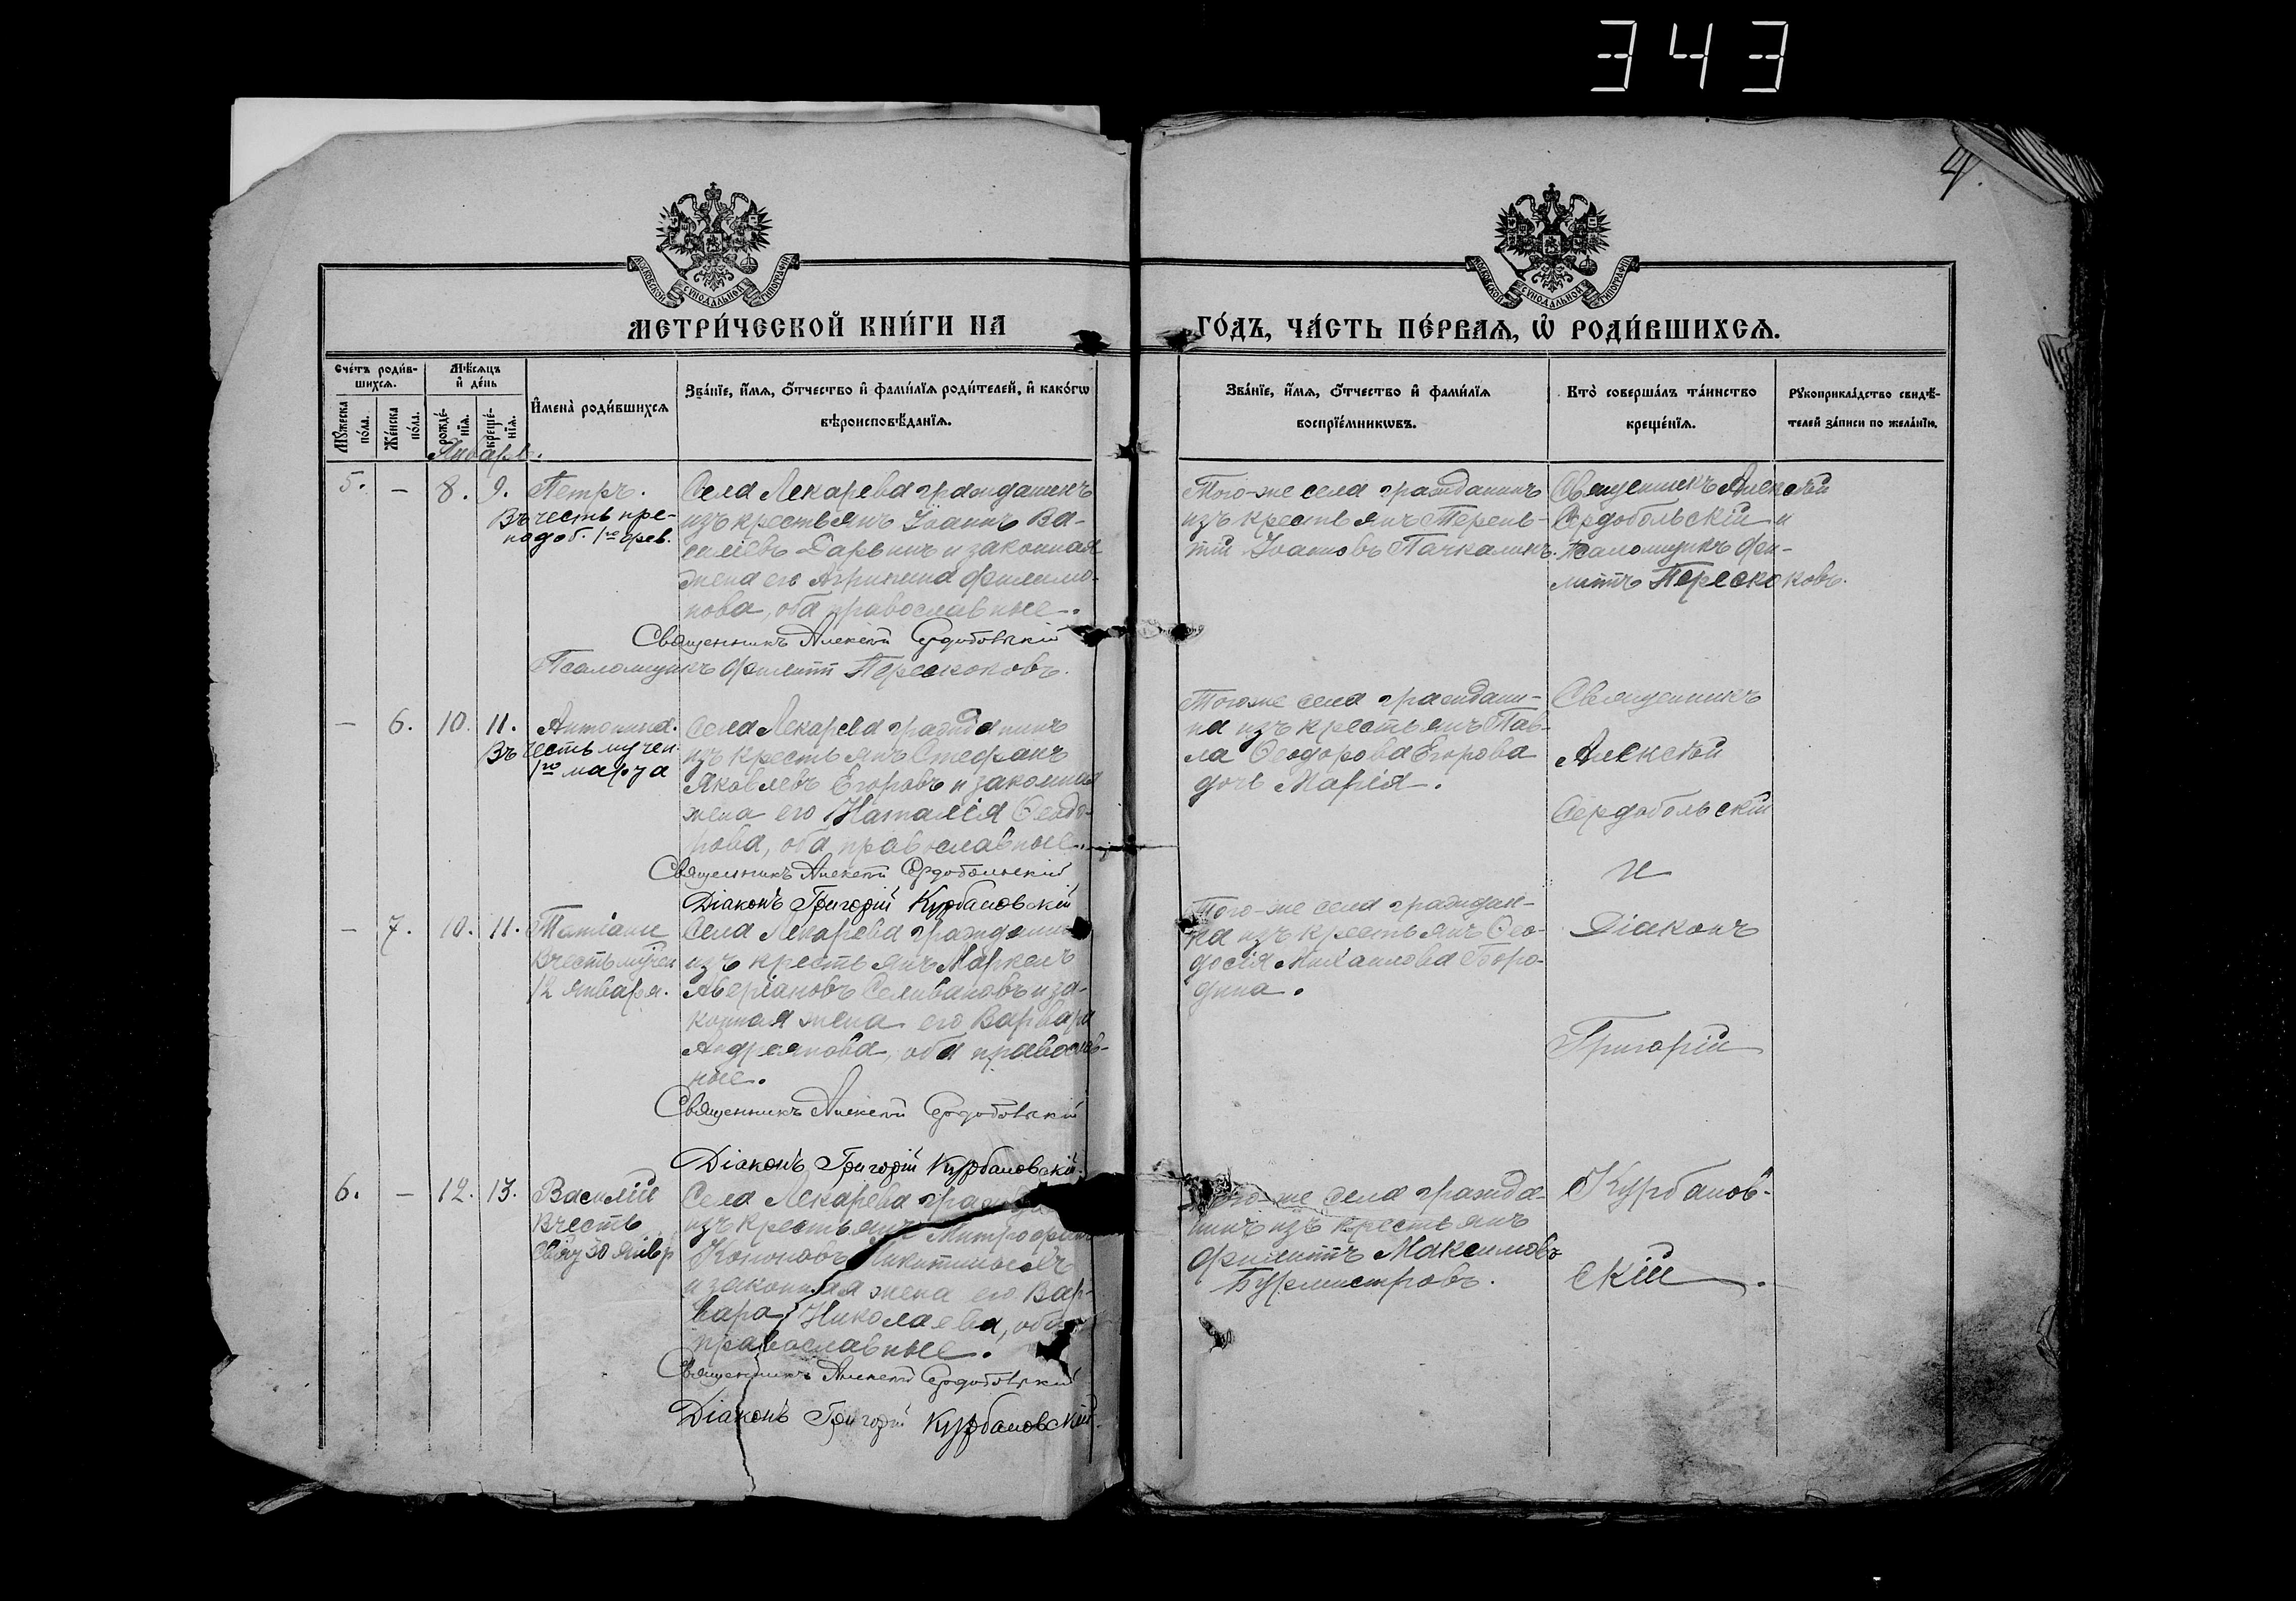 343
4.
МОСКОВСКОЙ СѴНОДАЛЬНОЙ ТИПОГРАФІИ
МОСКОВСКОЙ СѴНОДАЛЬНОЙ ТИПОГРАФІИ
МЕТРИ́ЧЕСКОЙ КНИ́ГИ НА
ГО́ДЪ, ЧА́СТЬ ПЕ́РВАЯ, Ѡ РОДИ́ВШИХСЯ.
Счетъ родив-
шихся.
Мужеска пола.
Женска пола.
Мѣсяцъ
и день
рожде-
нія.
креще-
нія.
Имена родившихся
Званіе, имя, отчество и фамилія родителей, и какогѡ
вѣроисповѣданія.
Званіе, имя, отчество и фамилія
воспріемникѡвъ.
Кто совершалъ таинство
крещенія.
Рукоприкладство свидѣ-
телей записи по желанію.
Январь.
5. – 8. 9. Петръ.
Въ честь пре-
подоб. 1го фев.
Села Лекарева гражданинъ
изъ крестьянъ Іоаннъ Ва-
силіевъ Дарьинъ и законная
жена его Агрипина Филимо-
нова, оба православные.
Священникъ Алексѣй Сердобольскій
Псаломщикъ Филиппъ Перескоковъ.
Того-же села гражданинъ
изъ крестьянъ Терень-
тій Іоанновъ Пачкалинъ.
Священникъ Алексѣй
Сердобольскій и
псаломщикъ Фи-
липпъ Перескоковъ.
– 6. 10. 11. Антонина.
Въ честь мучен.
1го марта
Села Лекарева гражданинъ
изъ крестьянъ Стефанъ
Яковлевъ Егоровъ и законная
жена его Наталія Ѳеодо-
рова, оба православные.
Священникъ Алексѣй Сердобольскій
Діаконъ Григорій Курбановскій
Того-же села граждани-
на изъ крестьянъ Пав-
ла Ѳеодорова Егорова
дочь Марія.
Священникъ
Алексѣй
Сердобольскій
и
Діаконъ
Григорій
Курбанов-
скій.
– 7. 10. 11. Татіана
В честь мучен
12 января.
Села Лекарева гражданинъ
изъ крестьянъ Маркелъ
Аверіановъ Селивановъ и за-
конная жена его Варвара
Андреянова, оба православ-
ные.
Священникъ Алексѣй Сердобольскій
Діаконъ Григорій Курбановскій.
Того-же села граждан-
ка изъ крестьянъ Ѳео-
досія Михаилова Боро-
дина.
6. – 12. 13. Василій
В честь
30 янвр
Села Лекарева
изъ крестьянъ Митрофанъ
Кононовъ
и законная жена его Вар-
вара Николаева, оба
православные.
Священникъ Алексѣй Сердобольскій
Діаконъ Григорій Курбановскій.
Того-же села гражда-
нинъ изъ крестьянъ
Филиппъ Максимовъ
Бурмистровъ.